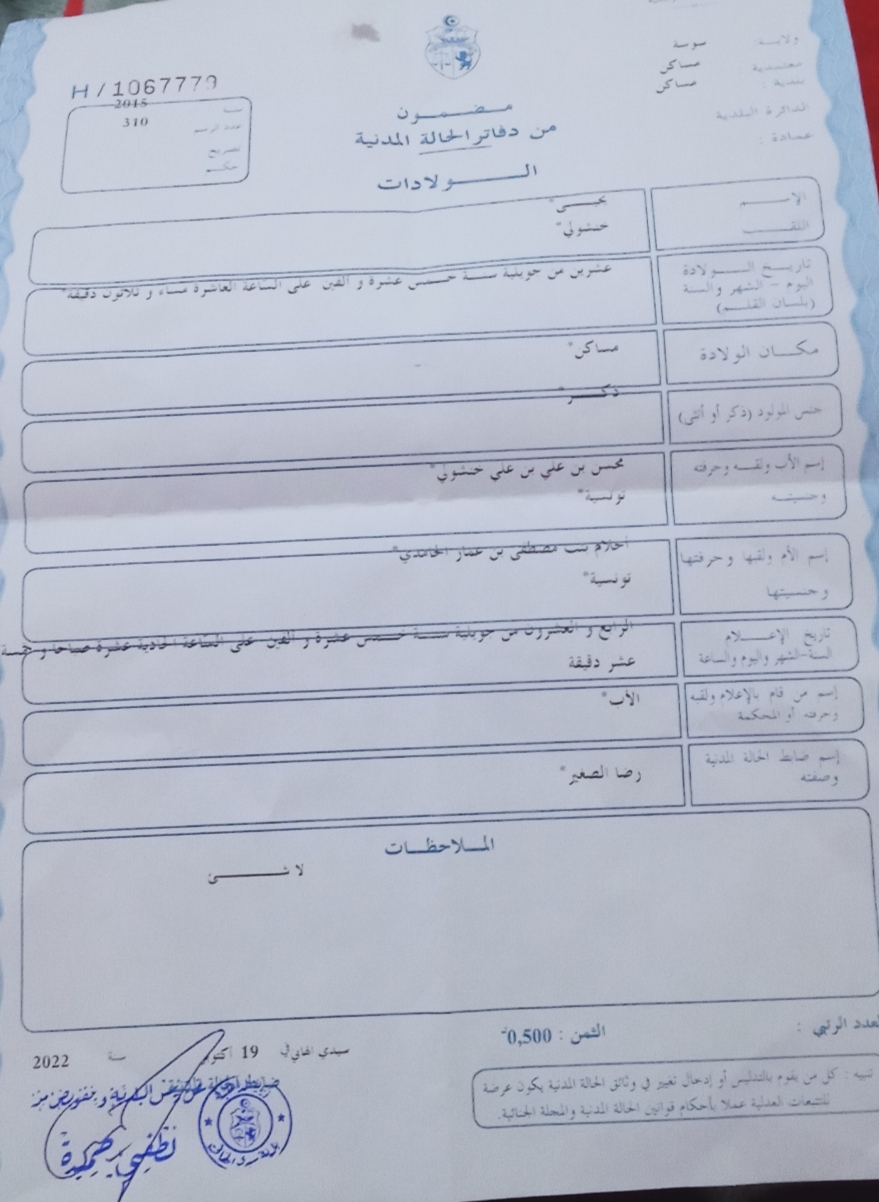 ولاية: سوسة
معتمدية مساكن
بلدية: مساكن
الدائرة البلدية
عمادة:
H/1067779
سنة 2015
عدد الرسم 310
تصريح
حكم
مضمون
من دفاتر الحالة المدنية
الولادات
الاسم يحيى*
اللقب خنشولي*
تاريخ الولادة
اليوم - الشهر والسنة
(بلسان القلم)
عشرين من جويلية سنة خمس عشرة و الفين على الساعة العاشرة مساء و ثلاثون دقيقة*
مكان الولادة مساكن*
جنس المولود (ذكر أو أنثى) ذكر*
إسم الأب ولقبه وحرفته محسن بن علي بن علي خنشولي*
وجنسيته تونسية*
إسم الأم ولقبها وحرفتها احلام بنت مصطفى بن عمار الحامدي*
وجنسيتها تونسية*
تاريخ الإعلام
السنة-الشهر واليوم والساعة
الرابع و العشرون من جويلية سنة خمس عشرة و الفين على الساعة الحادية عشرة صباحا و خمسة
عشر دقيقة
إسم من قام بالإعلام ولقبه الأب*
وحرفته أو المحكمة
إسم ضابط الحالة المدنية رضا الصغير*
وصفته
الملاحظات
لا شئ
العدد الرتبي :
الثمن : 0,500د
سيدي الهاني في 19 أكتوبر سنة 2022
تنبيه : كل من يقوم بالتدليس أو إدخال تغيير في وثائق الحالة المدنية يكون عرضة
للتتبعات العدلية عملا بأحكام قوانين الحالة المدنية والمجلة الجنائية.